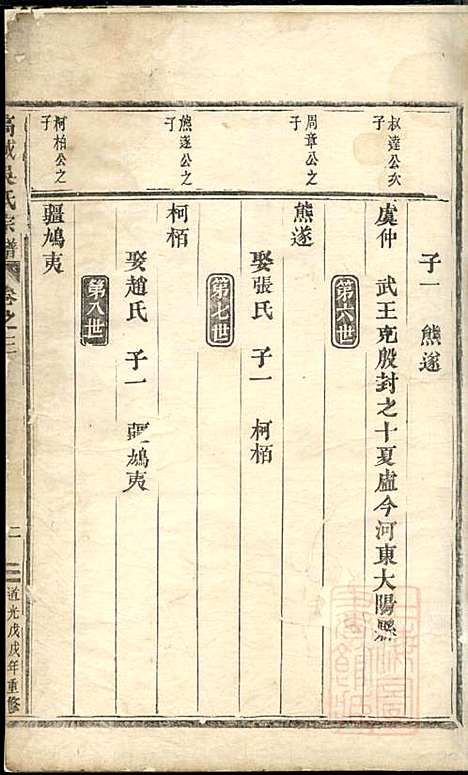 子一 熊遂
叔達公次子
虞仲 武王克殷封之十夏虛今河東大陽縣
第六世
周章公之子
熊遂
娶張氏 子一 柯栢
第七世
熊遂公之子
柯栢
娶趙氏 子一 疆鳩夷
第八世
柯栢公之子
疆鳩夷
吳氏宗譜
卷之三
二
道光戊戌年重修